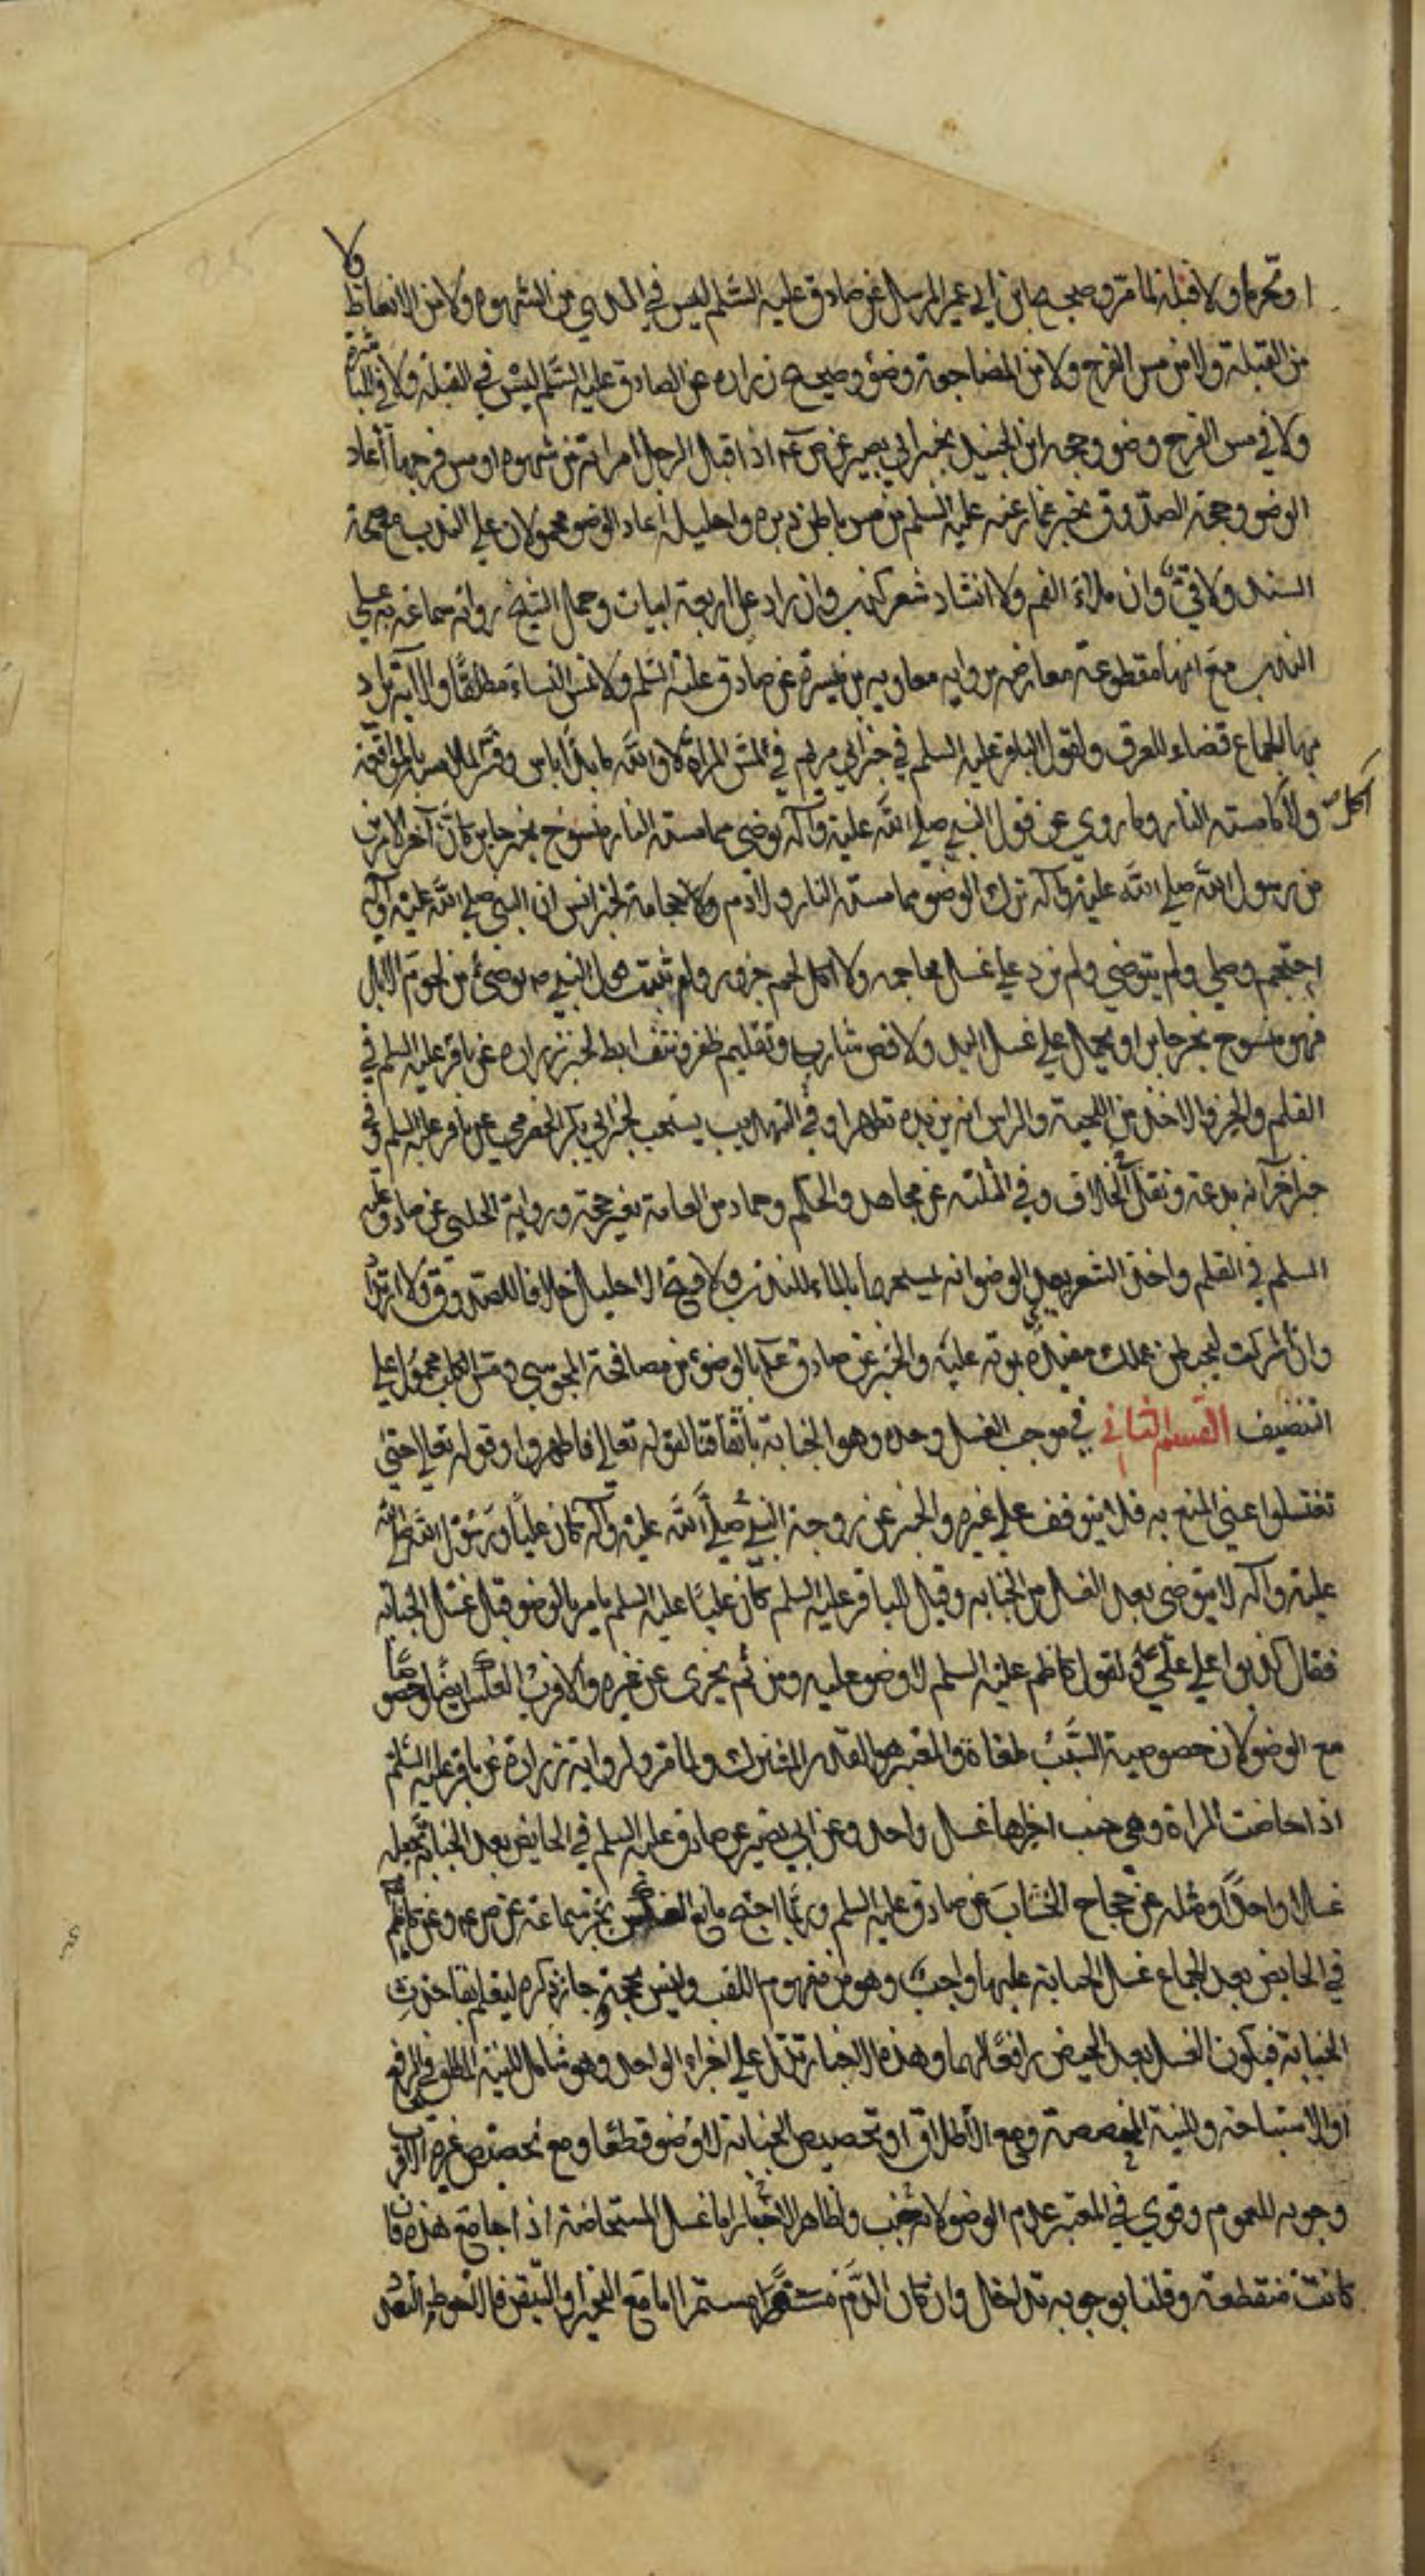 او محرما ولا قبلة لما مر وصحيح ابن ابي عمير المرسل عن صادق عليه السلم ليس في المذي من الشهوة ولا من الانعاظ ولا
من القبلة ولا من مس الفرج ولا من المضاجعة وضوء وصحيح زراره عن الصادق عليه السلم ليس في القبلة ولا في المباشرة
ولا في مس الفرج وضو وحجه ابن الجنيد بخبر ابي بصير عن ص عم اذا قبل الرجل امراته من شهوه او مس فرجها اعاد
الوضو وحجة الصدوق بخبر عمار عنه عليه السلم من مس باطن دبره واحليله اعاد الوضو محمولان على الندب مع صحة
السند ولا قئ وان ملاء الفم ولا انشاد شعر كذب وان زاد على اربعة ابيات وحمل الشيخ رواية سماعة به على
الندب مع انها مقطوعة معارضه برواية معاويه بن ميسرة عن صادق عليه السلم ولا لمس النساء مطلقا والاية يراد
بها الجماع قضاء للعرف ولقول الباقر عليه السلم في خبر ابي مريم في لمس المراة لا والله ما بذا باس وفسر الملامس بالمواقعة
ولا اكل ما مسته النار وما روي عن قول النبي صلى الله عليه وآله توضي مما مسته النار منسوخ بخبر جابر كان آخر الامرين
من رسول الله صلى الله عليه وآله ترك الوضو مما مسته النار ولا دم ولا حجامة لخبر انس ان النبي صلى الله عليه وآله
احتجم وصلى ولم يتوضي ولم يزد على غسل محاجمه ولا اكل لحم جزور ولم يثبت قول النبي ص توضئ من لحوم الابل
فهو منسوخ بخبر جابر او يحمل على غسل اليد ولا قص شارب وتقليم ظفر ونتف ابط لخبر زراره عن باقر عليه السلم في
القلم والجز والاخذ من اللحية والراس انه يزيده تطهرا وفي التهذيب يستحب لخبر ابي بكر الحضرمي عن باقر عليه السلم وفي
خبر آخر انه بدعة ونقل الخلاف وفي المثلثه عن مجاهد والحكم وحماد من العامة بغير حجة ورواية الحلبي عن صادق عليه
السلم في القلم واخذ الشعر بعد الوضو انه يمسحها بالماء للندب ولا فتح الاحليل خلافا للصدوق ولا ارتداد
وان اشركت ليحبطن عملك مقيدة بموته عليه والخبر عن صادق عم بالوضوء من مصافحة المجوسي ومس الكلب محمول على
التنضيف القسم الثاني في موجب الغسل وحده وهو الجنابة باتفاقنا لقوله تعالى فاطهروا وقوله تعالى حتى
تغتسلوا عني المنع به فلا يتوقف على غيره والخبر عن زوجة النبي صلى الله عليه وآله كان عليا ورسول الله صلى الله
عليه وآله لا يتوضى بعد الغسل من الجنابه وقيل للباقر عليه السلم كان عليا عليه السلم يامر بالوضو قبل غسل الجنابه
فقال كذبوا على علي ع ولقول كاظم عليه السلم لا وضو عليه ومن ثم يجزى عن غيره والاقرب العكس ايضا خصوصا
مع الوضو لان خصوصية السبب ملغاة والمعتبر هو القدر المشترك ولما مر ولرواية زرارة عن باقر عليه السلم
اذا حاضت المراة وهي جنب اجزاها غسل واحد وعن ابي بصير عن صادق عليه السلم في الحايض بعد الجنابة تجعله
غسلا واحدا ومثله عن حجاج الخشاب عن صادق عليه السلم وربما احتج مانع العكس بخبر سماعة عن ص عم وعن كاظم ع
في الحايض بعد الجماع غسل الجنابة عليها واجب وهو من مفهوم اللقب وليس بحجة جاز ذكره ليعلم بقا حدث
الجنابة فيكون الغسل بعد الحيض رافعا لهما وهذه الاخبار تدل على اجزاء الواحد وهو شامل للنية المطلق في الرفع
او الاستباحة وللنية المخصصة ومع الاطلاق او تخصيص الجنابة لا وضو قطعا ومع تخصيص غيره الاقرب
وجوبه للعموم وقوي في المعتبر عدم الوضو لانه جنب ولظاهر الاخبار اما غسل المستحاضة اذا جامع هذه فان
كانت منقطعة وقلنا بوجوبه تداخل وان كان الدم مستمرا اما مع التحير او التيقن فالاحوط التعدد